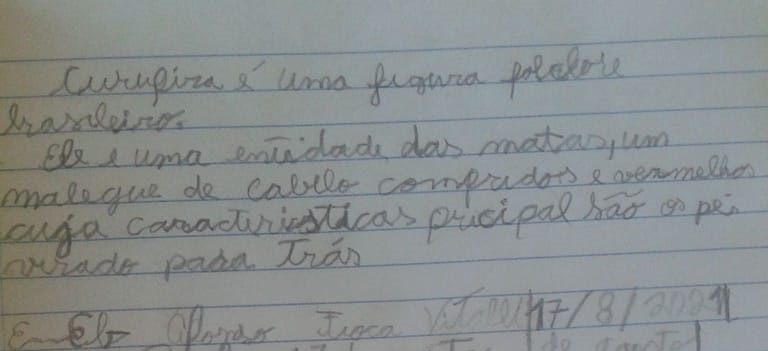 Curupira é uma figura folclore
brasileiro.
Ele e uma entidade das matas, um
malegue de cabelo compridos e vermelhos
cuja caracteristicas pricipal são os pés
virado para trás
17/8/2021